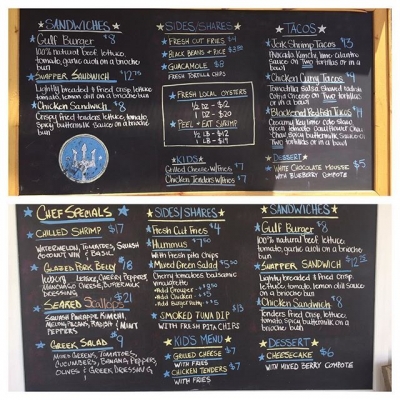 SANDWICHES
Gulf Burger $8
100% natural beef lettuce,
tomato, garlic aioli on a brioche
bun
Snapper Sandwich $12.75
Lightly breaded & fried crisp lettuce
tomato, lemon dill on a brioche bun
Chicken Sandwich $8
Crispy fried tenders lettuce, tomato,
spicy buttermilk sauce on a brioche
bun
SIDES/SHARES
Fresh Cut Fries $4
Black Beans & Rice
Guacamole $8
Fresh Tortilla Chips
Fresh Local Oysters
1/2 DZ - $12
1 DZ - $20
Peel & Eat Shrimp
1/2 LB - $12
1 LB - $19
KIDS
Grilled Cheese w/Fries $7
Chicken Tenders w/Fries $7
TACOS
Jerk Shrimp Tacos
Avocado Kimchi, lime cilantro
sauce on two tortillas or in a
bowl
Chicken Curry Tacos
on two tortillas
or in a bowl
Blackened Redfish Tacos
Creamy key lime cake slaw
green tomato
spicy buttermilk sauce on
two tortillas or in a bowl
DESSERT
White Chocolate Mousse $5
with Blueberry Compote
Chef Specials
Chilled Shrimp $17
Watermelon, Tomatoes, Squash
Coconut Vin & Basil
Glazed Pork Belly $18
Iceberg lettuce, cherry peppers,
Manchego cheese, buttermilk
dressing
Seared Scallops $21
Squash, Pineapple Kimchi,
& Mint
Peppers
Greek Salad $9
Mixed Greens, Tomatoes,
Cucumbers, Banana Peppers
Olives & Greek Dressing
SIDES/SHARES
Fresh Cut Fries $4
Hummus $7.50
with Fresh Pita Chips
Mixed Green Salad $5.50
Cherry tomatoes balsamic
vinaigrette
Add Grouper
Add Chicken
Add Burger Patty
Smoked Tuna Dip $13
with Fresh Pita Chips
KIDS MENU
Grilled Cheese $7
with Fries
Chicken Tenders $7
with Fries
SANDWICHES
Gulf Burger $8
100% natural beef lettuce
tomato, garlic aioli on a brioche
bun
Snapper Sandwich $12.75
Lightly breaded & fried crisp
lettuce tomato, lemon dill sauce
on a brioche bun
Chicken Sandwich $8
Tenders fried crisp, lettuce,
tomato spicy buttermilk on a brioche
bun
DESSERT
Cheesecake $6
with Mixed Berry Compote